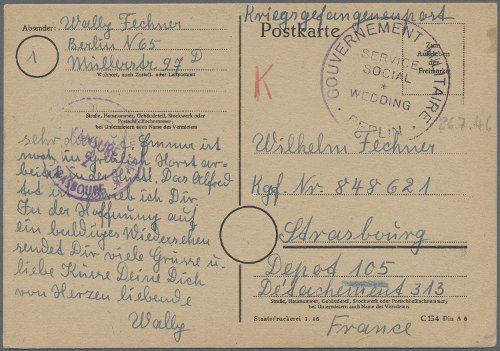 Absender: Wally Fechner
Berlin N65
Müllerstr. 97 D
Wohnort, auch Zustell- oder Leitpostamt
1
Straße, Hausnummer, Gebäudeteil, Stockwerk oder
Postschließfachnummer;
bei Untermietern auch Name des Vermieters
sehr
noch in Görlich Horst ar-
beitet in der Das Alfred
tot ich Dir
In der Hoffnung auf
ein baldiges Wiedersehen
sendet Dir viele Grüsse u.
liebe Küsse Deine Dich
von Herzen liebende
Wally
STRASBOURG
Kriegsgefangenenpost
Postkarte
Zum
Aufkleben
der
Freimarke
K
GOUVERNEMENT MILITAIRE
SERVICE
SOCIAL
*
WEDDING
BERLIN
26.7.46
Wilhelm Fechner
Kgf. Nr. 848621
Strasbourg
Depot 105
Détachement 313
Straße, Hausnummer, Gebäudeteil, Stockwerk oder Postschließfachnummer;
bei Untermietern auch Name des Vermieters
France
Staatsdruckerei 1.46
C 154 Din A 6